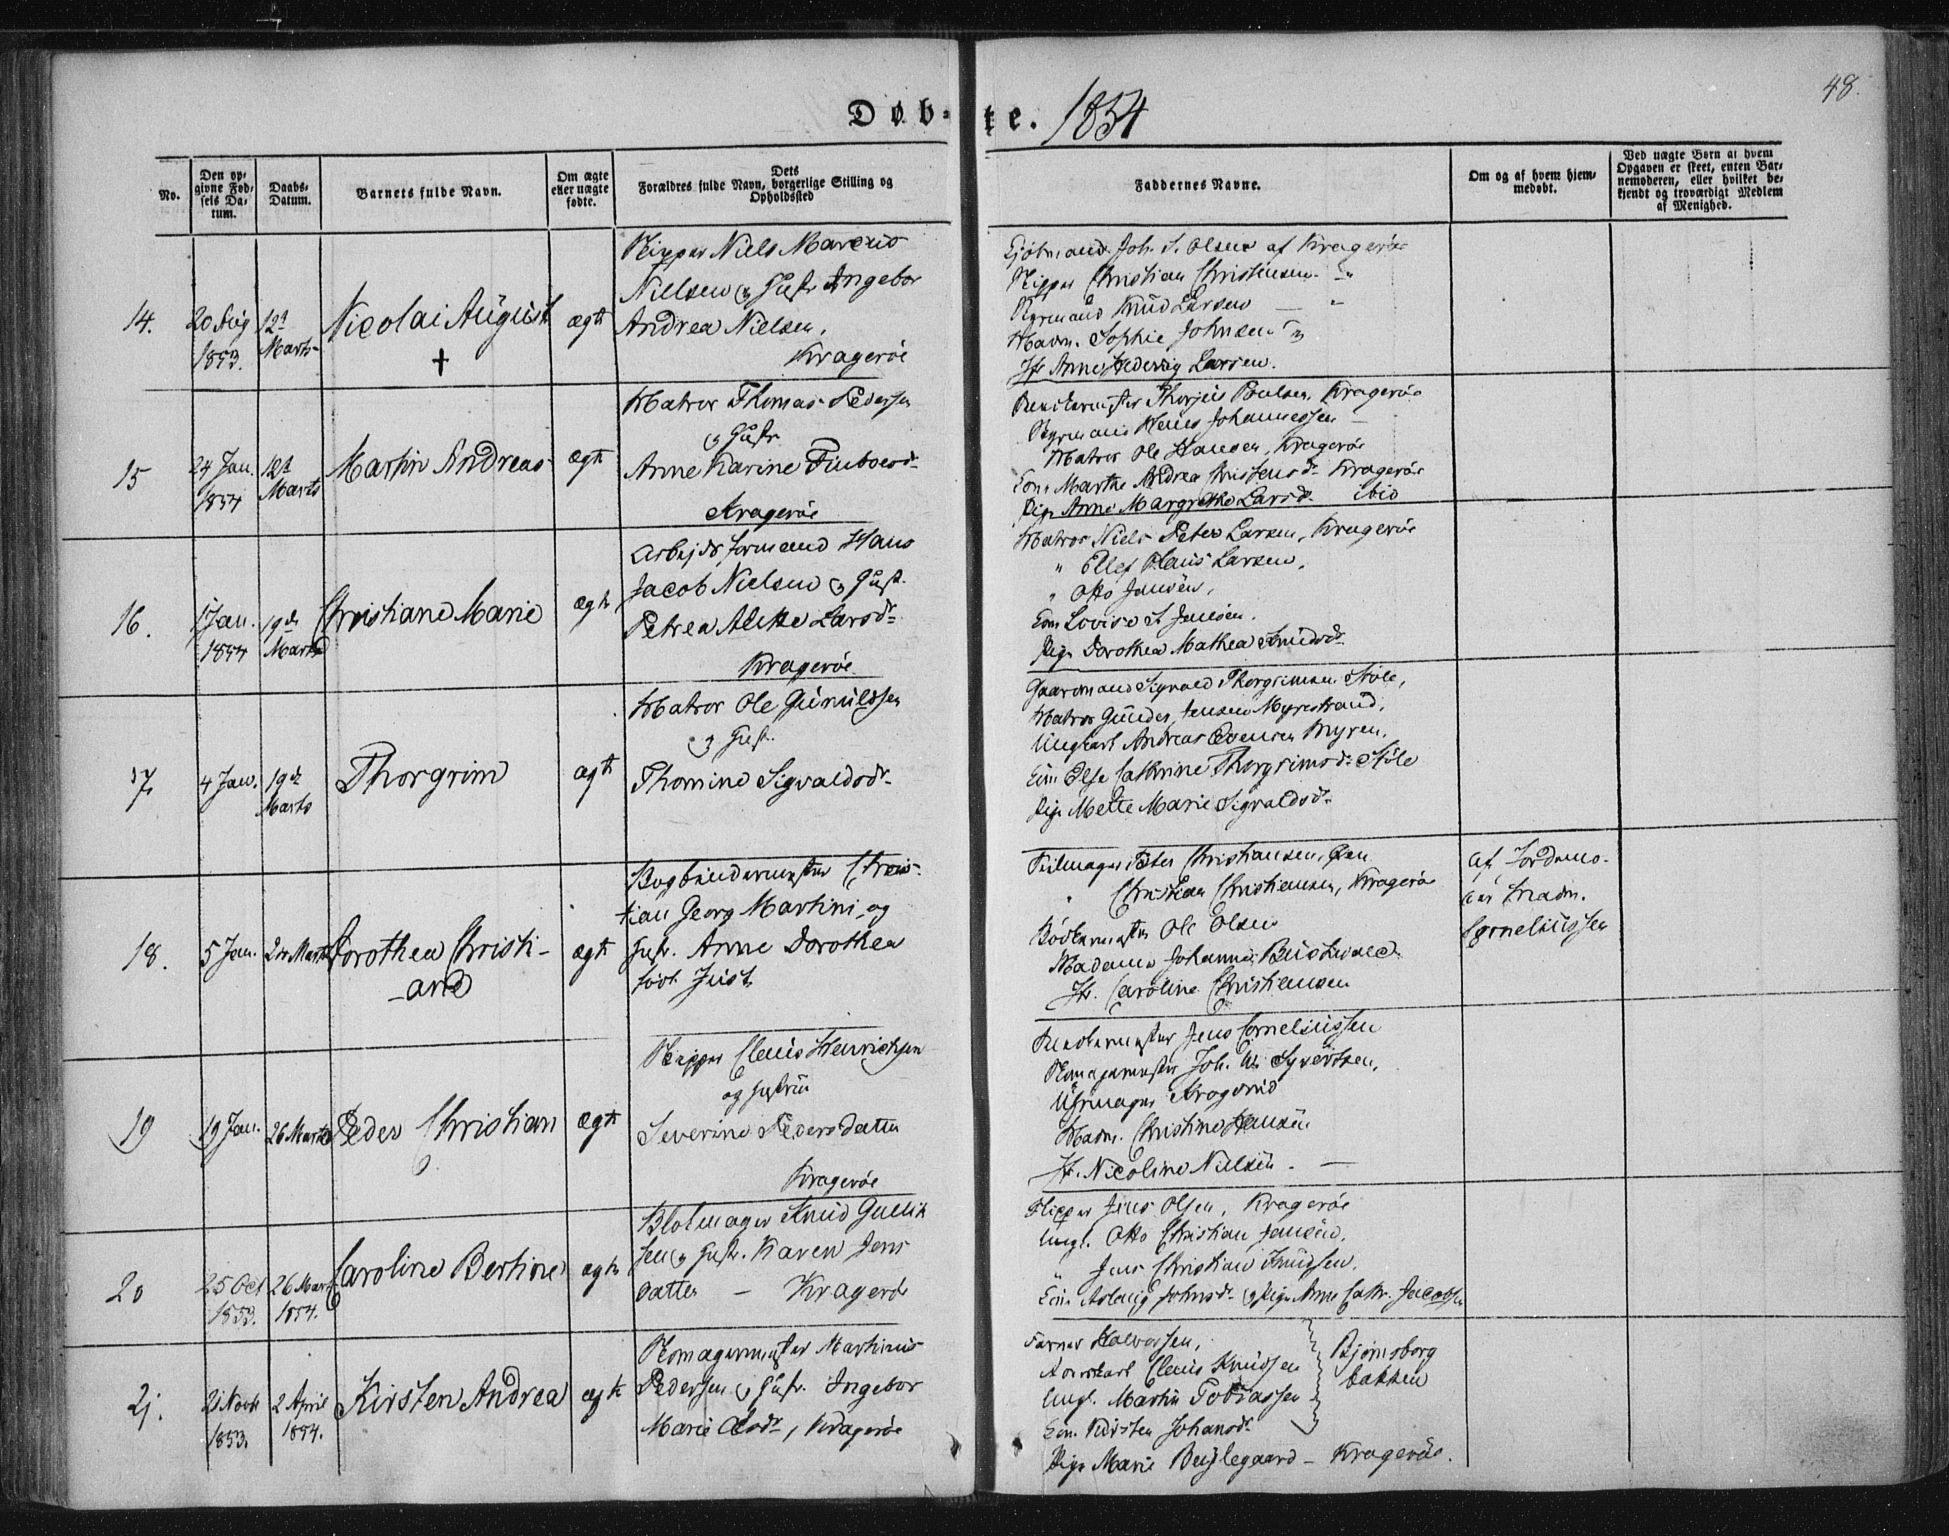 48.
Døbte. 1854
No.
Den opgivne Fødsels Datum.
Daabs-Datum.
Barnets fulde Navn.
Om ægte eller uægte fødte.
Dets Forældres fulde Navn, borgerlige Stilling og Opholdssted
Faddernes Navne.
Om og af hvem hjemmedøbt.
Ved uægte Børn at hvem Opgaven er skeet, enten Barnemoderen, eller hvilket bekjendt og troværdigt Medlem af Menighed.
14.
20 Aug
1853.
12t
Marts
Nicolai August
+
ægte
Skipper Niels Marcus
Nielsen og Hustr Ingebor
Andrea Nielsen,
Kragerøe
Joh. S. Olsen af Kragerøe
Skipper Christian Christensen - "
Styrmand Knud Larsen - "
Madm. Sophie Johnsen "
Jfr Anne Hedevig Larsen.
15
24 Jan.
1854
12t
Marts
Martin Andreas
ægte
Matros Thomas Pedersen
og Hustr.
Anne Karine
Kragerøe
Thorjus Poulsen, Kragerøe
Styrmand Johannessen -
Matros Ole Hansen, Kragerøe
Kone Marthe Andrea Christensdr Kragerøe
Pige Anne Margrethe Larsdr ibid
16.
1 Jan.
1854
19de
Marts
Christiane Marie
ægte
Arbejdsformand Hans
Jacob Nielsen og Hust.
Petrea Alette Larsdr
Kragerøe
Matros Niels Peter Larsen, Kragerøe
" Ellef Claus Larsen,
" Otto Jansen,
Kone Lovise Jansen.
Pige Dorothea Mathea Knudsdr
17.
4 Jan.
19de
Marts
Thorgrim
ægte
Matros Ole Gunuldsen
og Hust.
Thomine Sigvaldsdr
Gaardmand Sigvald Thorgrimsen Støle,
Matros Gunder Jensen Myrestrand,
Ungkarl Andreas Evensen Myren,
Kone Else Cathrine Thorgrimsdr Støle
Pige Mette Marie Sigvaldsdr
18.
5 Jan.
Marts
Dorothea Christi-
ane
ægte
Bogbindermester Chris-
tian Georg Martini, og
Hustr. Anne Dorothea
født Just
Seilmager Peter Christiansen,
" Christian Christiansen, Kragerøe
Bødkermester Ole Olsen
Madame Johanne
Jfr. Caroline Christiansen
Af Jordmo-
der Madm.
Corneliussen
19
19 Jan.
26 Marts
Peder Christian
ægte
Skipper Claus Henrichsen
og Hustru
Severine Pedersdatter
Kragerøe
Jens Corneliussen
Skomagermester Joh. Syvertsen,
Uhrmager
Madm. Christine Hansen
Jfr. Nicoline Nielsen. -
20
25 Oct
1853.
26 Marts
1854.
Caroline Bertine
ægte
Blokmager Knud Gullik
sen og Hustr. Karen Jens
datter - Kragerøe
Skipper Jens Olsen, Kragerøe
Ungk. Otto Christian Jansen,
" Jens Christian Knudsen.
Kone Aslaug Johnsdr og Pige Anne Cath. Jacobsen
21.
21 Novb
1853.
2 April
1854.
Kirsten Andrea
ægte
Skomagermester Martinus
Pedersen og Hustr. Ingebor
Marie Olsdr, Kragerøe
Farver Halvorsen,
Claus Knudsen
Ungk. Martin Tobiassen
Kone Kirsten Johansdr
Bjørnsborg
bakken
Pige Marie Bøylegaard - Kragerøe.